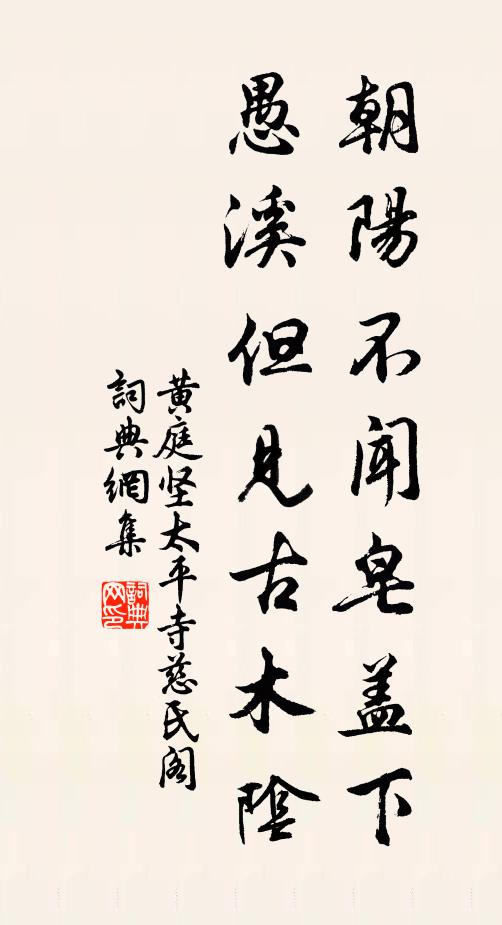 朝陽不聞皂蓋下
愚溪但見古木陰
黄庭坚太平寺慈氏阁
詞典網集
詞典网印